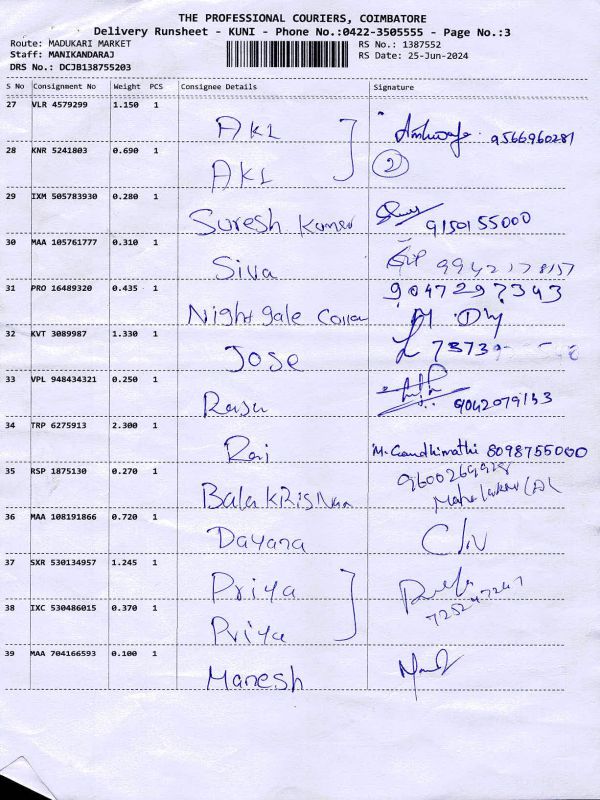 THE PROFESSIONAL COURIERS, COIMBATORE
Delivery Runsheet - KUNI - Phone No.:0422-3505555 - Page No.:3
Route: MADUKARI MARKET RS No.: 1387552
Staff: MANIKANDARAJ RS Date: 25-Jun-2024
DRS No.: DCJB138755203
S No Consignment No Weight PCS Consignee Details Signature
27 VLR 4579299 1.150 1 AKL 9566960281
28 KNR 5241803 0.690 1 AKL 2
29 IXM 505783930 0.280 1 Suresh Kumar 9150155000
30 MAA 105761777 0.310 1 Siva 9942178157
31 PRO 16489320 0.435 1 Nightgale 9047297343
32 KVT 3089987 1.330 1 Jose 7373
33 VPL 948434321 0.250 1 Rasu 9042079153
34 TRP 6275913 2.300 1 Raj M. Gandhimathi 8098755000
35 RSP 1875130 0.270 1 BalaKRISNan
36 MAA 108191866 0.720 1 Dayana
37 SXR 530134957 1.245 1 Priya
38 IXC 530486015 0.370 1 Priya
39 MAA 704166593 0.100 1 Manesh